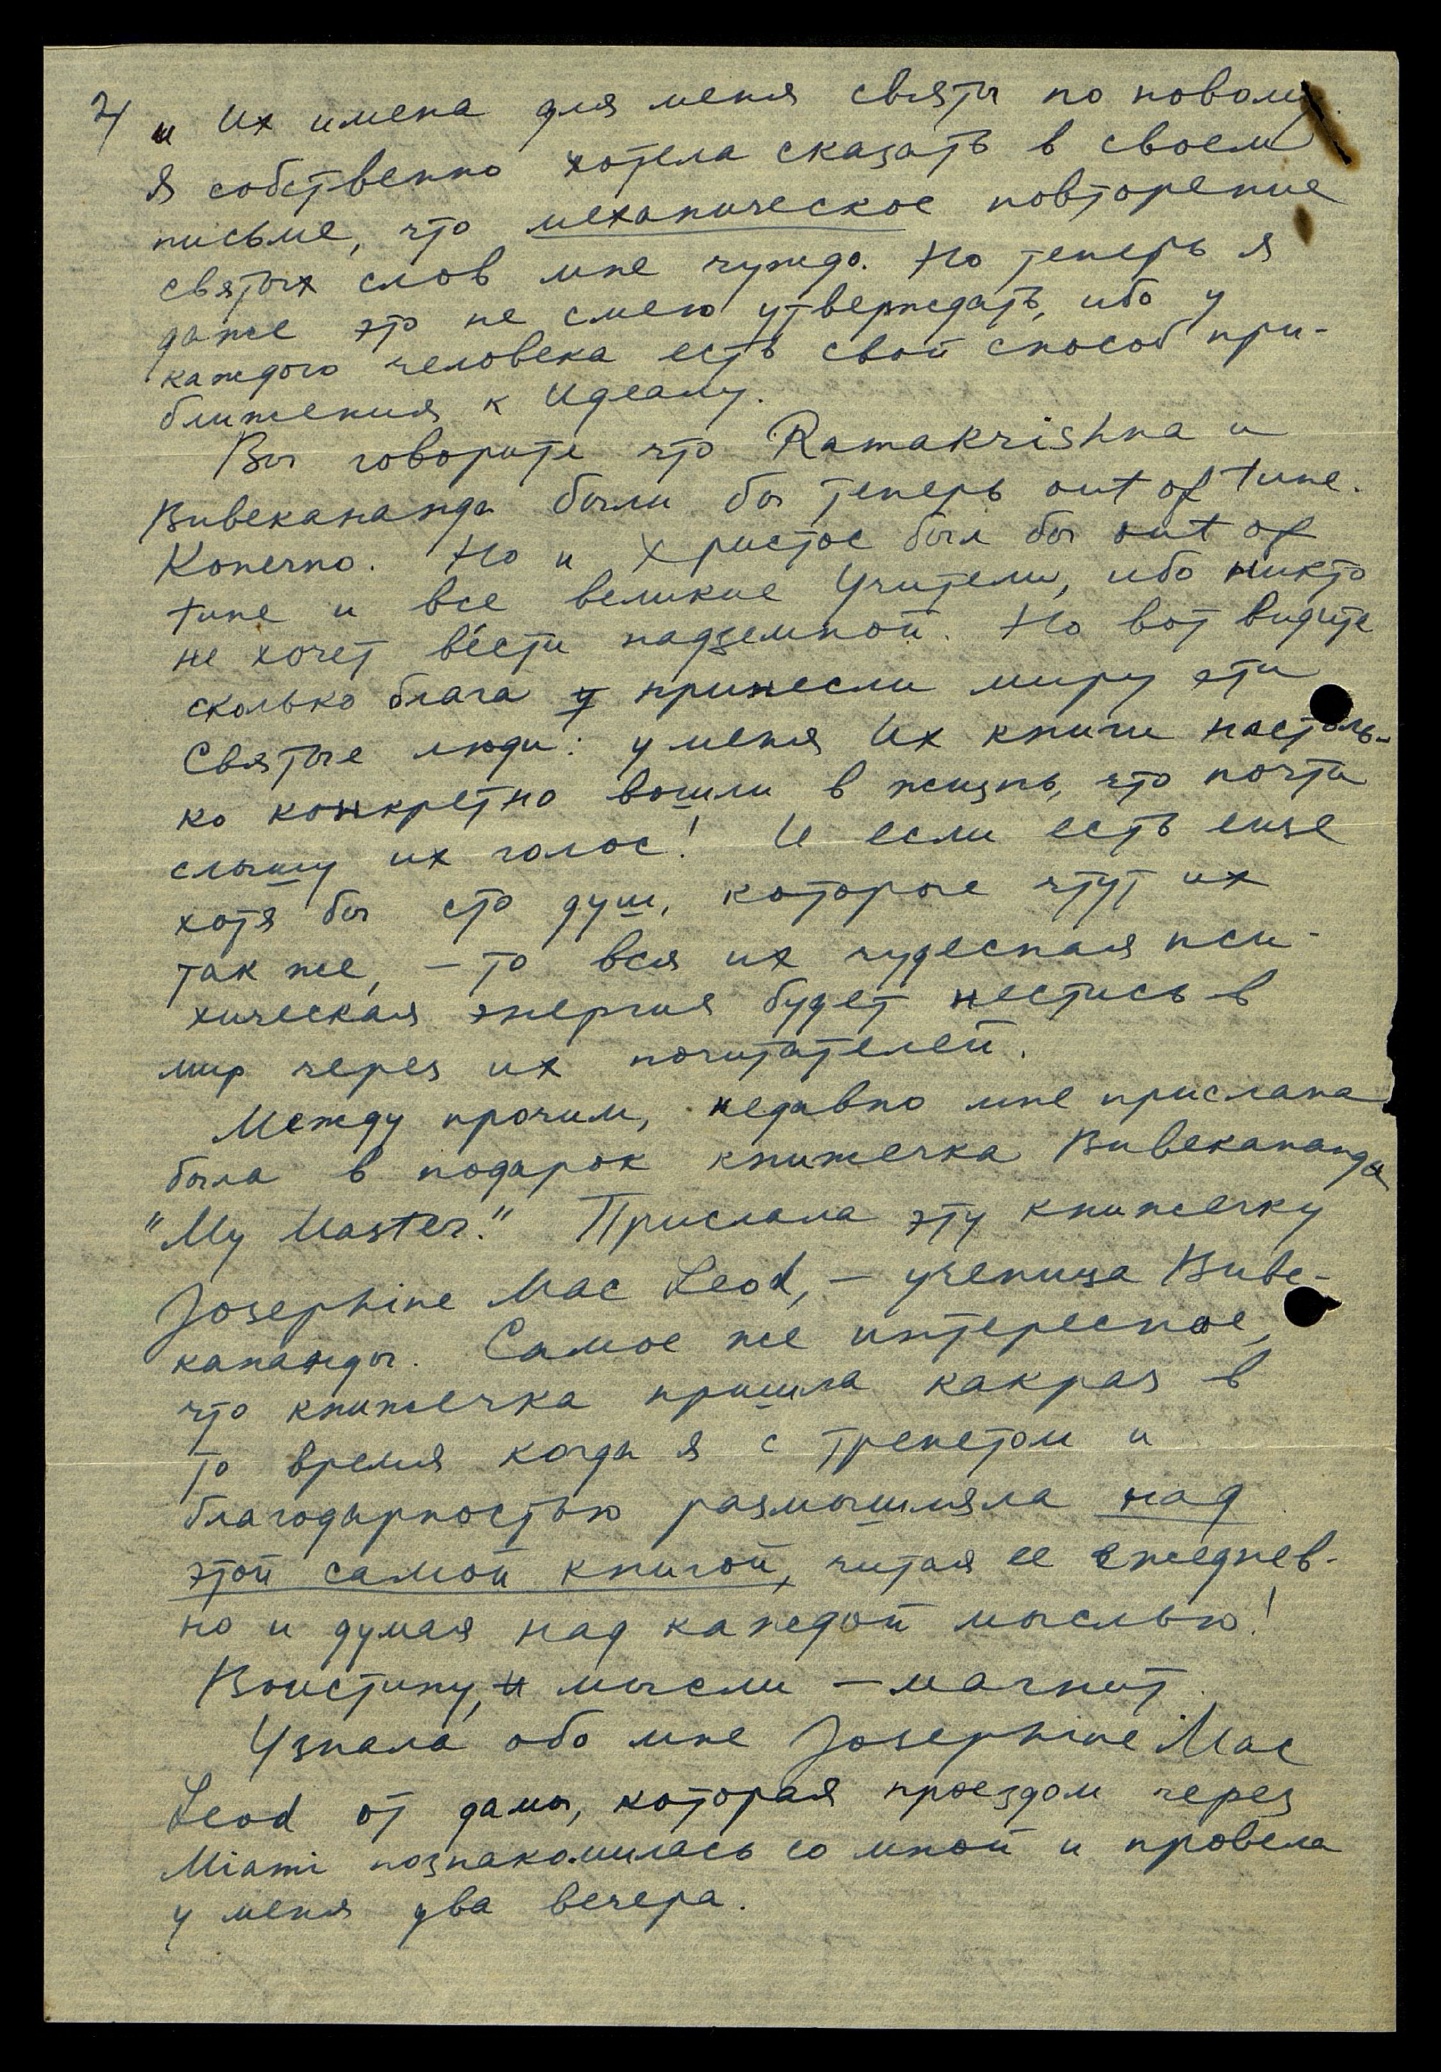 2/ и Их имена для меня святы по новому.
Я собственно хотела сказать в своем
письме, что механическое повторение
святых слов мне чуждо. Но теперь я
даже это не смею утверждать, ибо у
каждого человека есть свой способ при-
ближения к Идеалу.
Вы говорите что Ramakrishna и
Вивекананда были бы теперь out of tune.
Конечно. Но и Христос был бы out of
tune и все великие Учителя, ибо никто
не хочет вести надземной. Но вот видите
сколько блага принесли миру эти
Святые люди: у меня Их книги настоль-
ко конкретно вошли в жизнь, что почти
слышу их голос! И если есть еще
хотя бы сто душ, которые чтут их
так же, – то вся их чудесная пси-
хическая энергия будет нестись в
мир через их почитателей.
Между прочим, недавно мне прислана
была в подарок книжечка Вивекананда
"My Master." Прислала эту книжечку
Josephine Mac Leod, – ученица Виве-
кананды. Самое же интересное,
что книжечка пришла какраз в
то время когда я с трепетом и
благодарностью размышляла над
этой самой книгой, читая ее ежеднев-
но и думая над каждой мыслью!
Воистину, мысли – магнит.
Узнала обо мне Josephine Mac
Leod от дамы, которая проездом через
Miami познакомилась со мной и провела
у меня два вечера.